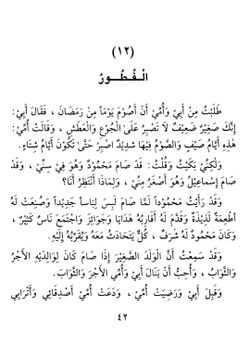 (١٢)
الْفُطُورُ
طَلَبْتُ مِنْ أَبِيْ وَأُمِّيْ أَنْ أَصُوْمَ يَوْمًا مِنْ رَمَضَانَ ، فَقَالَ أَبِيْ:
إِنَّكَ صَغِيْرٌ ضَعِيْفٌ لَا تَصْبِرُ عَلَى الْجُوْعِ وَالْعَطَشِ ، وَقَالَتْ أُمِّيْ:
هٰذِهِ أَيَّامُ صَيْفٍ وَالصَّوْمُ فِيْهَا شَدِيْدٌ اصْبِرْ حَتّٰى تَكُوْنَ أَيَّامُ شِتَاءٍ.
وَلٰكِنِّيْ بَكَيْتُ وَقُلْتُ: قَدْ صَامَ مَحْمُوْدٌ وَهُوَ فِيْ سِنِّيْ ، وَقَدْ
صَامَ إِسْمَاعِيْلُ وَهُوَ أَصْغَرُ مِنِّيْ ، وَلِمَاذَا أَنْتَظِرُ أَنَا؟
وَقَدْ رَأَيْتُ مَحْمُوْدًا لَمَّا صَامَ لَبِسَ لِبَاسًا جَدِيْدًا وَصُنِعَتْ لَهُ
أَطْعِمَةٌ لَذِيْذَةٌ وَقَدَّمَ لَهُ أَقَارِبُهُ هَدَايَا وَجَوَائِزَ وَاجْتَمَعَ نَاسٌ كَثِيْرٌ ،
وَكَانَ مَحْمُوْدٌ لَهُ شَرَفٌ ، كُلٌّ يَتَحَادَثُ مَعَهُ وَيُقَرِّبُهُ إِلَيْهِ.
وَقَدْ سَمِعْتُ أَنَّ الْوَلَدَ الصَّغِيْرَ إِذَا صَامَ كَانَ لِوَالِدَيْهِ الْأَجْرُ
وَالثَّوَابُ ، وَأُحِبُّ أَنْ يَنَالَ أَبِيْ وَأُمِّي الْأَجْرَ وَالثَّوَابَ.
وَقَبِلَ أَبِيْ وَرَضِيَتْ أُمِّيْ ، وَدَعَتْ أُمِّيْ أَصْدِقَائِي وَأَتْرَابِي
٤٢